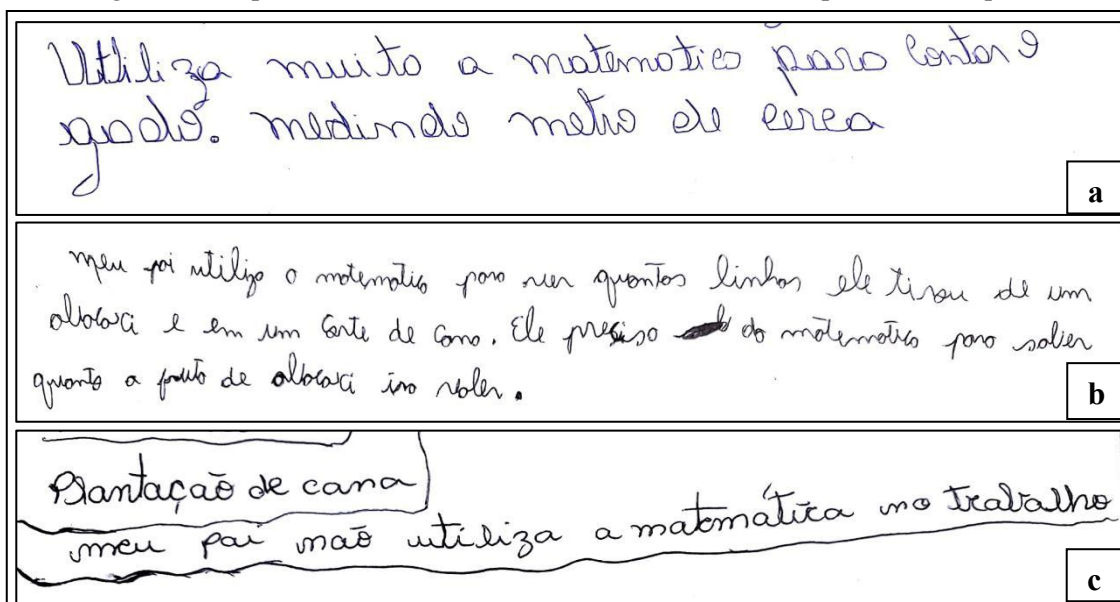 Utiliza muito a matematica para contar o
gado. medindo metro de cerca
a
meu pai utiliza a matematica para ver quantas linhas ele tirou de um
abacaxi e em um corte de cana. Ele precisa da matematica para saber
quanto a fruto de abacaxi ira valer.
b
Plantação de cana
meu pai não utiliza a matemática no trabalho
c